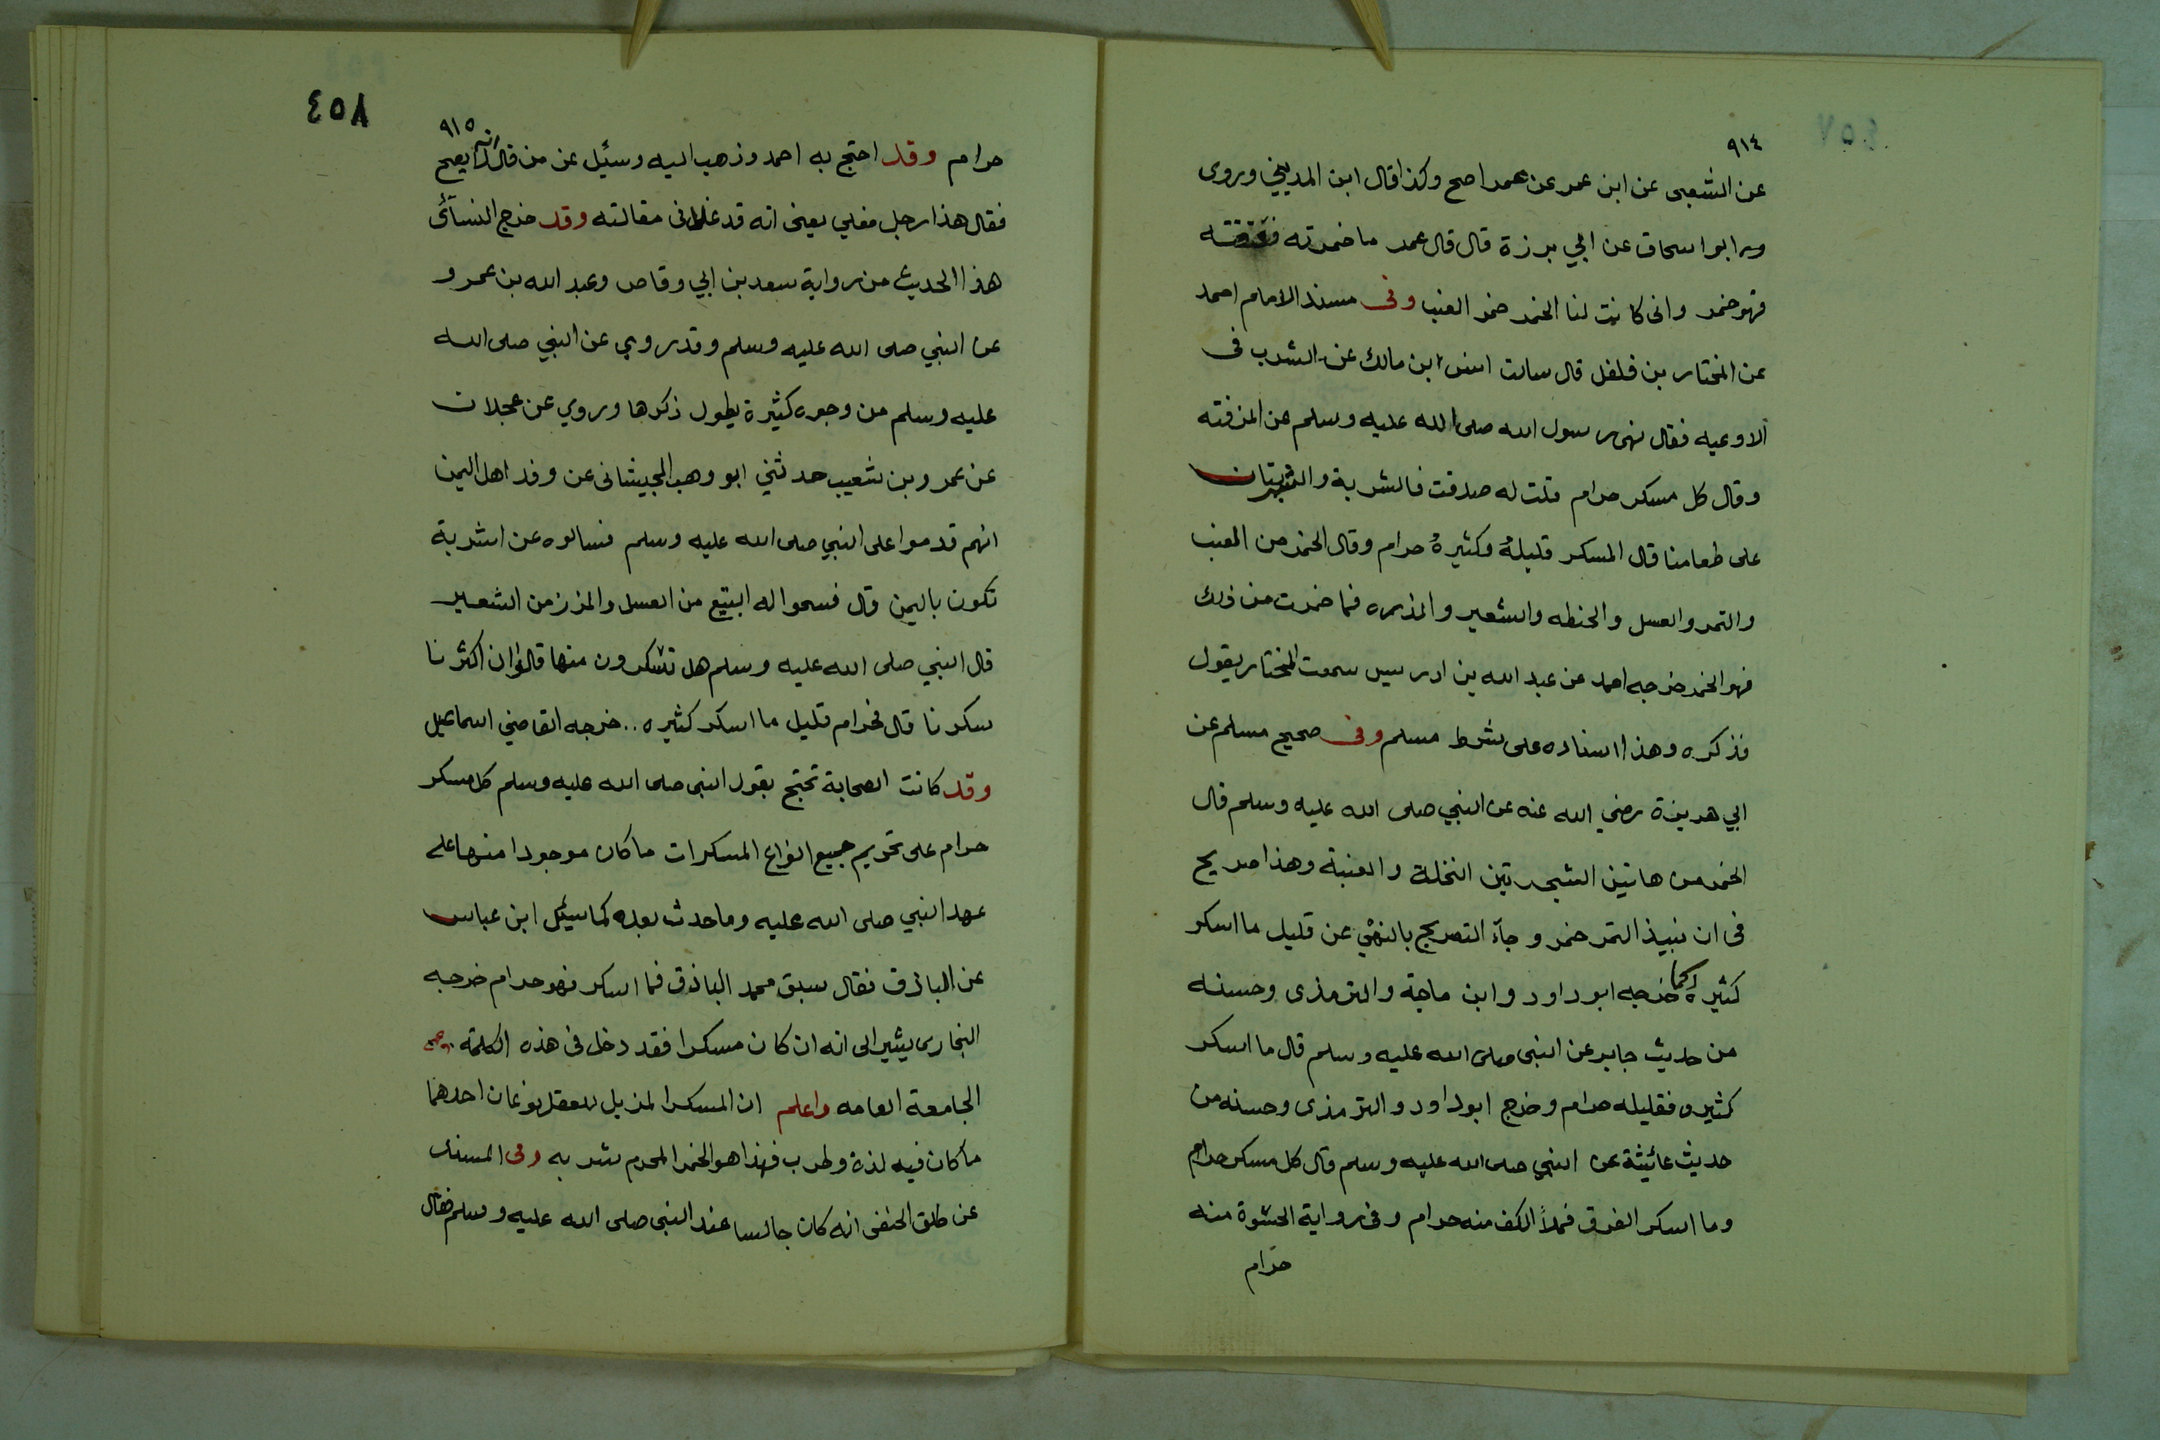 ٩١٤
عن الشعبى عن ابن عمر عن عمر اصح وكذا قال ابن المديني وروى
ابو اسحاق عن ابي برزة قال قال عمر ما خمرته فعتقته
فهو خمر وانى كانت لنا الخمر خمر العنب وفى مسند الامام احمد
عن المختار بن فلفل قال سالت انس ابن مالك عن الشرب فى
الاوعيه فقال نهى رسول الله صلى الله عليه وسلم عن المزفته
وقال كل مسكر حرام قلت له صدقت فالشربة والشربتان
على طعامنا قال المسكر قليلهُ وكثيرهُ حرام وقال الخمر من العنب
والتمر والعسل والحنطه والشعير والمذره فما خمرت من ذلك
فهو الخمر خرجه احمد عن عبد الله بن ادريس سمعت المختار يقول
فذكره وهذا اسناده على شرط مسلم وفى صحيح مسلم عن
ابي هريرة رضي الله عنه عن النبي صلى الله عليه وسلم قال
الخمر من هاتين الشجرتين النخلة والعنبة وهذا صريح
فى ان نبيذ التمر خمر وجآء التصريح بالنهي عن قليل ما اسكر
كثيره كما خرجه ابو داود وابن ماجة والترمذى وحسنه
من حديث جابر عن النبى صلى الله عليه وسلم قال ما اسكر
كثيره فقليله حرام وخرج ابو داود والترمذى وحسنه من
حديث عائيثة عن النبي صلى الله عليه وسلم قال كل مسكر حرام
وما اسكر الفرق فملأ الكف منه حرام وفى رواية الحشوة منه
حرام
٨٥٤
٩١٥
حرام وقد احتج به احمد وذهب اليه وسئيل عن من قال انه لا يصح
فقال هذا رجل مغلي يعنى انه قد غلا فى مقالته وقد خرج النسآئى
هذا الحديث من رواية سعد بن ابي وقاص وعبد الله بن عمرو
عن النبي صلى الله عليه وسلم وقد روي عن النبي صلى الله
عليه وسلم من وجوه كثيرة يطول ذكرها وروي عن عجلان
عن عمرو بن شعيب حدثني ابو وهب الجيشانى عن وفد اهل اليمن
انهم قدموا على النبي صلى الله عليه وسلم فسالوه عن اشربة
تكون باليمن قال فسموا له البتع من العسل والمزر من الشعير
قال النبي صلى الله عليه وسلم هل تشكرون منها قالوا ان اكثرنا
سكرنا قال فحرام قليل ما اسكر كثيره .. خرجه القاضي اسماعيل
وقد كانت الصحابة تحتج بقول النبى صلى الله عليه وسلم كل مسكر
حرام على تحريم جميع انواع المسكرات ما كان موجودا منها على
عهد النبي صلى الله عليه وما حدث بعده كما سئيل ابن عباس
عن الباذق فقال سبق محمد الباذق فما اسكر فهو حرام خرجه
البخارى يشير الى انه ان كان مسكرا فقد دخل فى هذه الكلمة
الجامعة العامه واعلم ان المسكر المزيل للعقل نوعان احدهما
ما كان فيه لذة وطرب فهذا هو الخمر المحرم شربه وفى المسند
عن طلق الحنفى انه كان جالسا عند النبى صلى الله عليه وسلم فقال